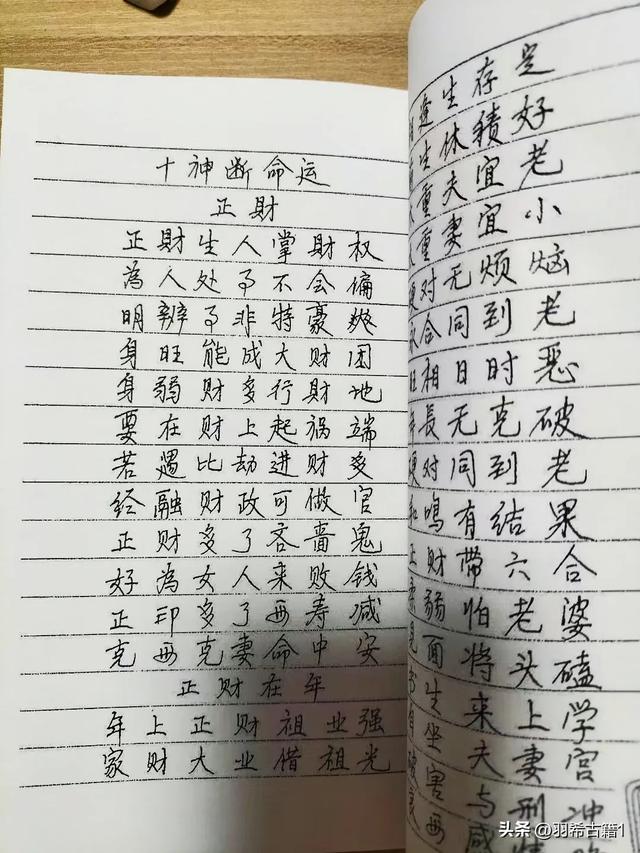 十神断命运
正財
正財生人掌財权
為人处事不会偏
明辨事非特豪爽
身旺能成大财团
身弱财多行財地
要在财上起祸端
若遇比劫进财多
经融财政可做官
正财多了吝啬鬼
好為女人来败钱
正印多了西寿减
克西克妻命中安
正财在年
年上正财祖业强
家财大业借祖光
逢生存是
生休積好
重夫宜老
重妻宜小
对无烦恼
合同到老
相日时恶
長无克破
对同到老
鳴有结果
正财带六合
弱怕老婆
面将头磕
生来上学
坐夫妻宫
害与刑冲
西咸
头条 @羽希古籍1